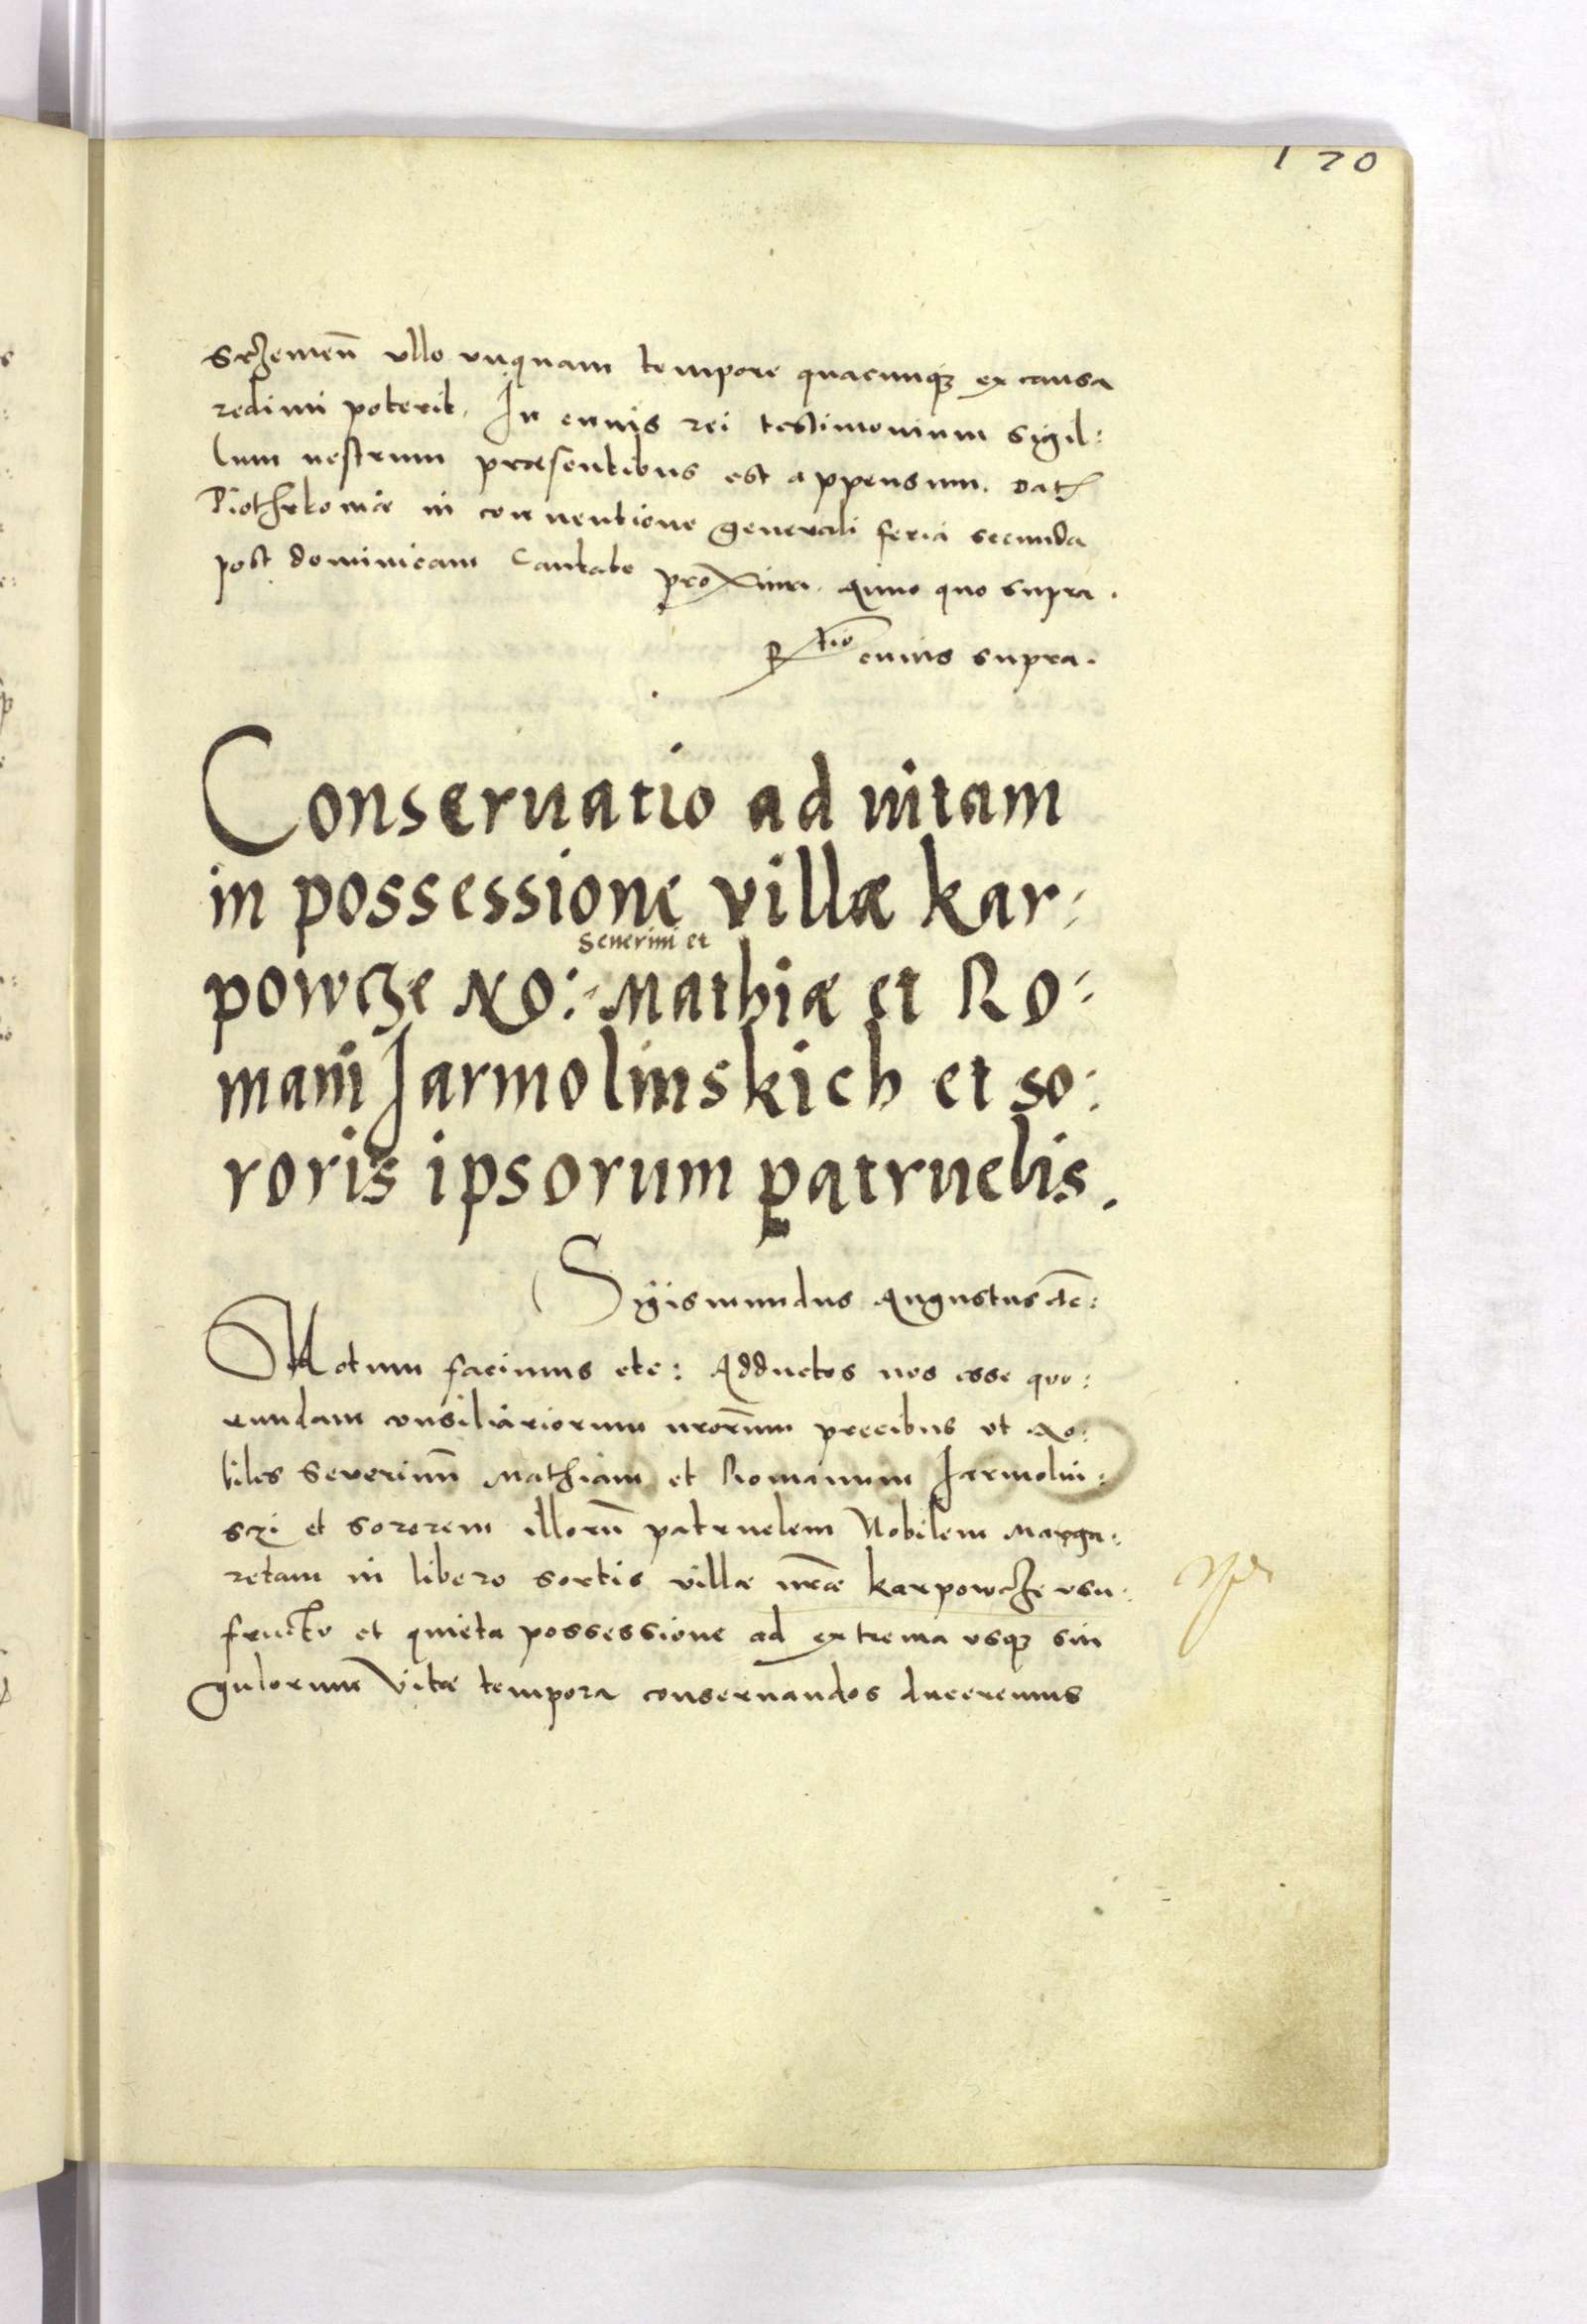 170
srzemen̄ ullo unquam tempore quacunqꝫ ex causa
redimi poterit, In cuius rei testimonium sigil:
lum nostrum præsentibus est appensum. Dat
Piothrkoviæ in conventione generali feria secunda
post dominicam Cantate proxima. Anno quo supra.
Rtio cuius supra.
Conseruatio ad uitam
in possessione villæ kar:
Seuerini et
powcze No: Mathiæ et Ro:
mani Jarmolinskich et so:
roris ipsorum patruelis.
Sigismundus Augustus etc:
Notum facimus etc: Adductos nos esse quo:
rundam consiliariorum nrorum precibus ut No:
biles Severinū Mathiam et Romanum Jarmolin:
sczi et sororem illorū patruelem Nobilem Marga:
retam in libero sortis villæ nræ karpowcze usu:
fructu et quieta possessione ad extrema usqꝫ sin
gulorum vitæ tempora conseruandos duceremus